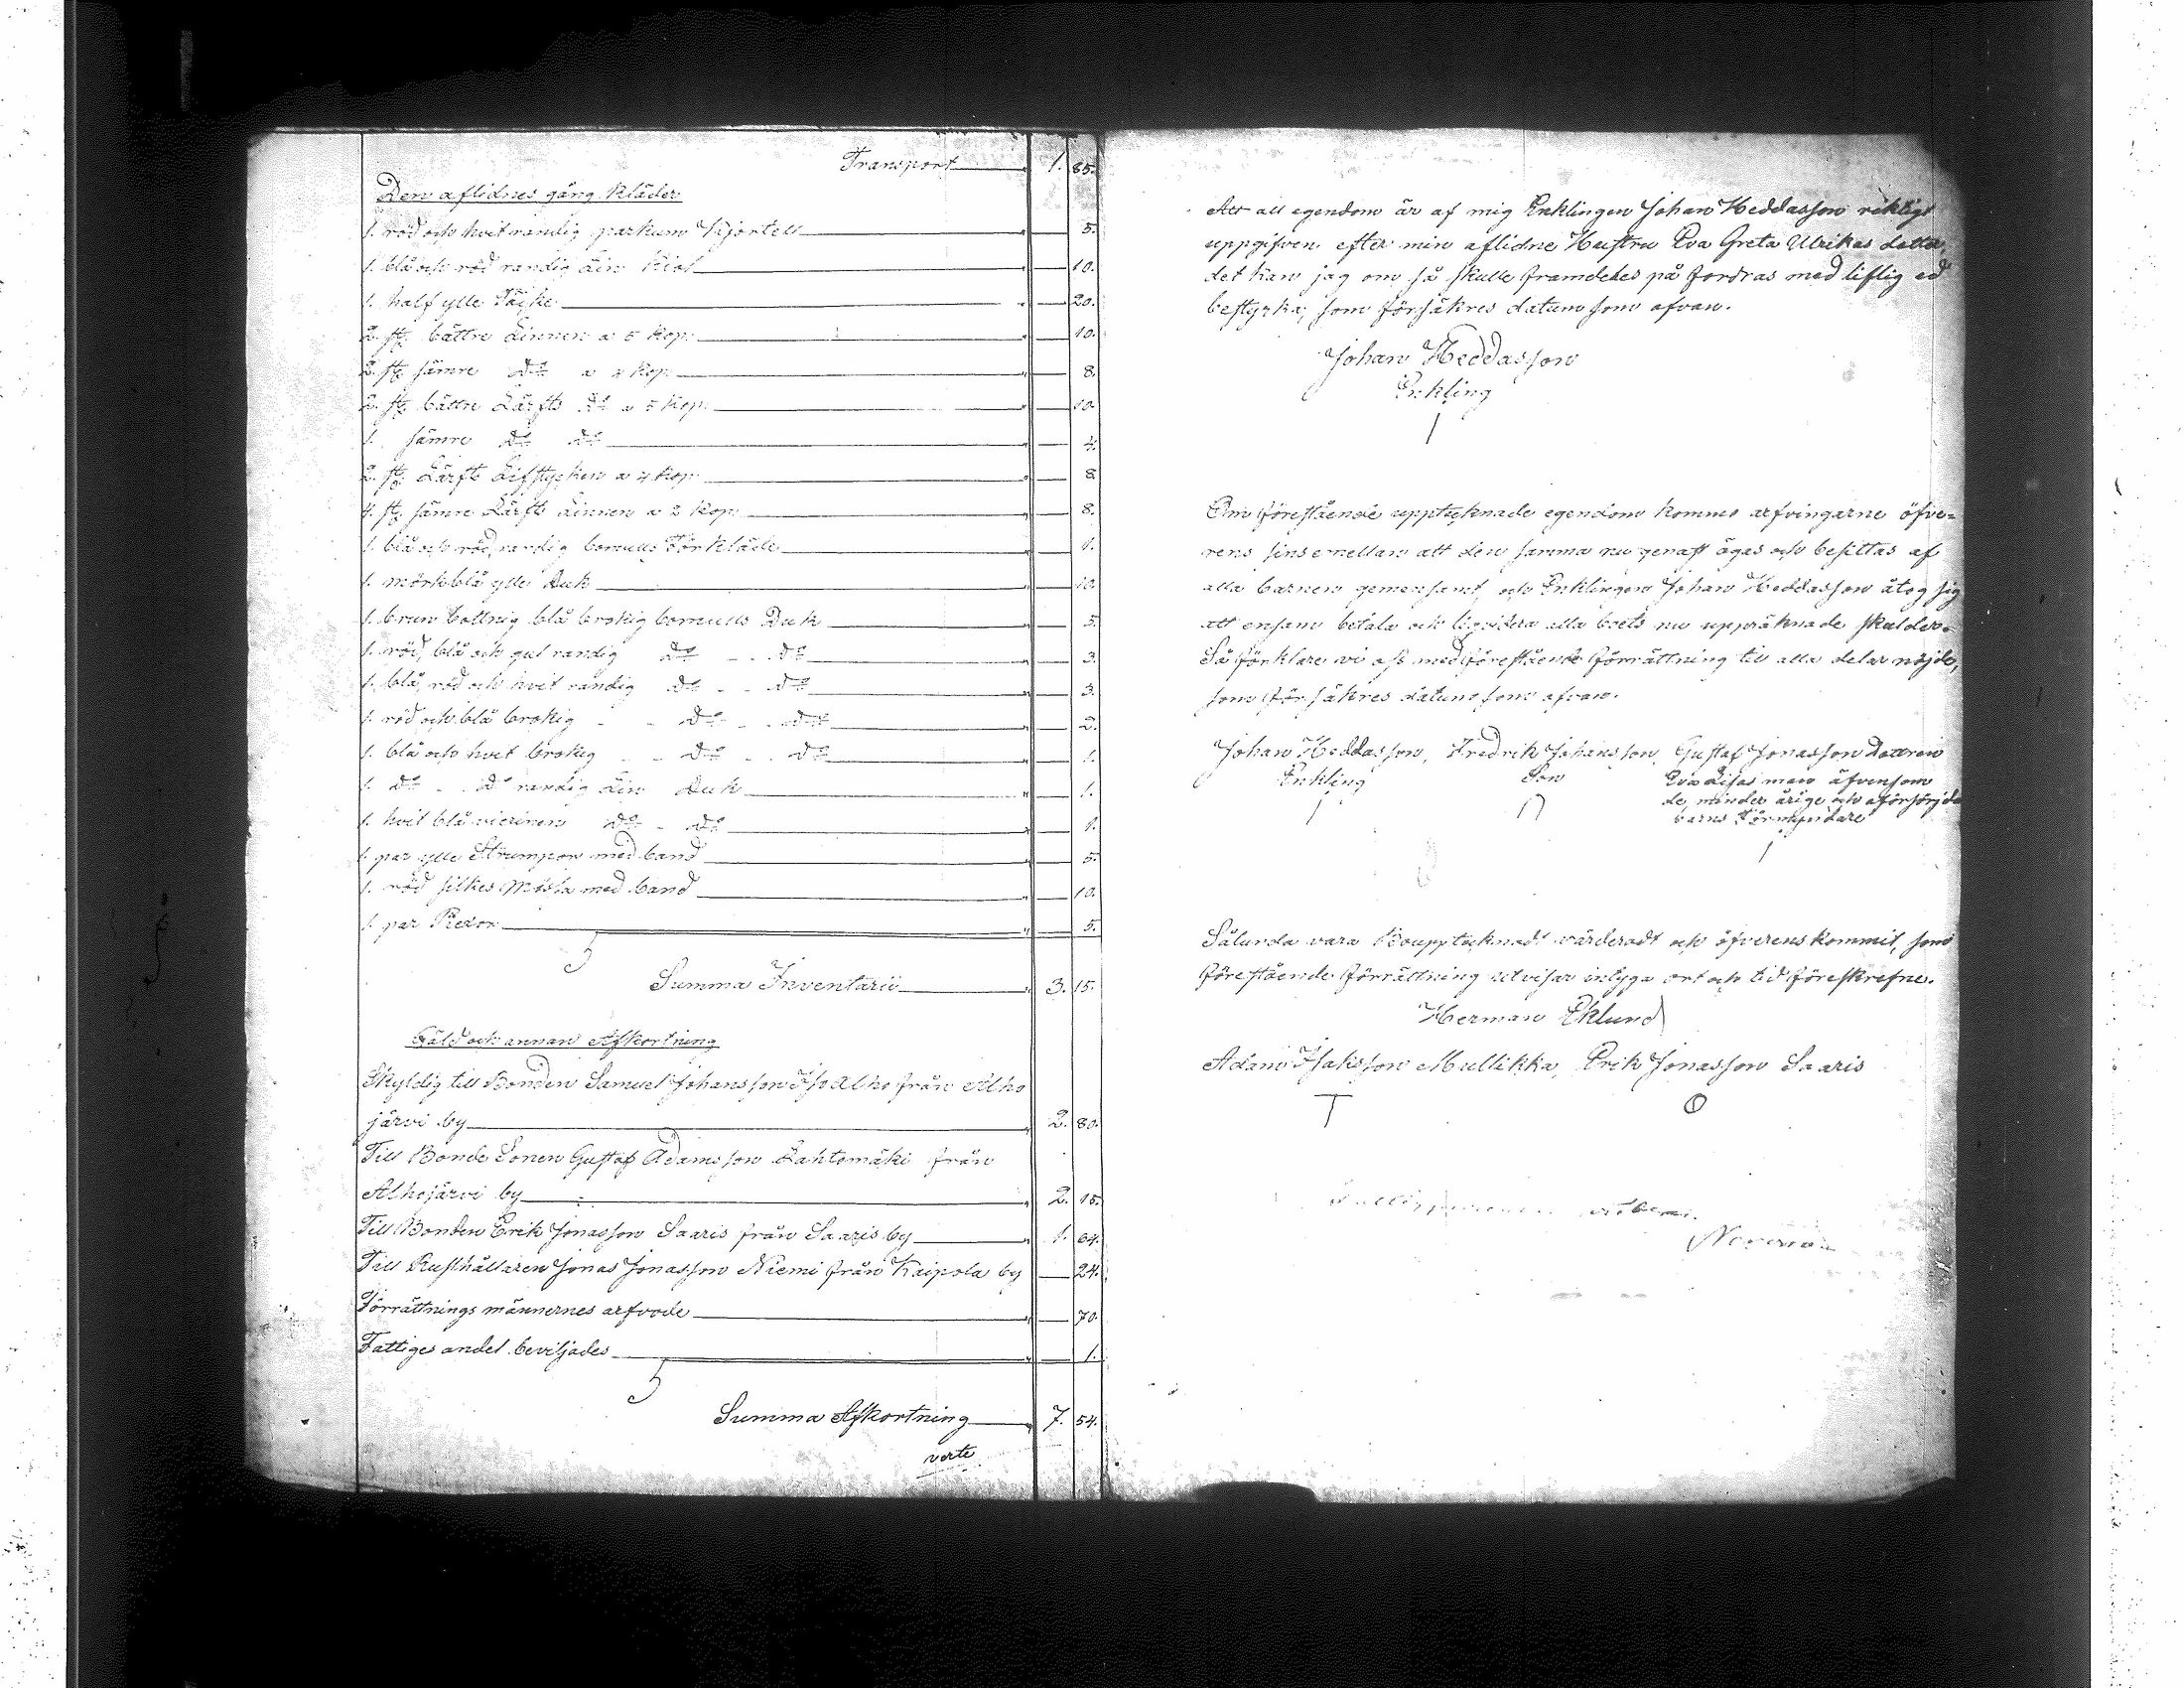 Transport 1. 85.
Den aflidnes gång kläder
1. röd och hvit randig parkum Kjortell 5.
1. blå och röd randig Lin Kiol 10.
1. half ylle Täjke 20.
2. st. bättre Linnen a 5 Kop. 10.
2. st. sämre d:o a 4 Kop. 8.
2. st. bättre Lärfts d:o a 5 Kop. 10.
1. sämre d:o d:o 4.
2. st. Lärfts Lifstycken a 4 Kop. 8
4. st. sämre Lärfts Linnen a 2 Kop. 8.
1. blå och röd randig bomulls Förkläde 1.
1. mörkblå ylle Duk 10.
1. brun bottnig blå brokig bomulls Duk 5.
1. röd, blå och gul randig d:o - - d:o 3.
1. blå, röd och hvit randig d:o - - d:o 3.
1. röd och blå brokig - - d:o - - d:o 2.
1. blå och hvit brokig - - d:o - - d:o 1.
1. d:o - - d:o randig Lin Duk 1.
1. hvit blå d:o - d:o 1.
1. par ylle Strumpor med band 5.
1. röd silkes Mössa med band 10.
1. par 5.
Summa Inventarii 3. 15.
Gäld och annan Afkortning
Skyldig till Bonden Samuel Johansson Iso Alho från Alho
järvi by 2. 80.
Till Bonde Sonen Gustaf Adamsson Lahtomäki från
Alhojärvi by 2. 15.
Till Bonden Erik Jonasson Saaris från Saaris by 1. 64.
Till Rusthållaren Jonas Jonasson Niemi från Kaipola by 24.
Förrättnings männernes arfvode 70.
Fattiges andel beviljades 1.
Summa Afkortning 7. 54.
verte
Att all egendom är af mig Enklingen Johan Heddasson riktigt
uppgifven efter min aflidne Hustru Eva Greta Ulrikas
det kan jag om så skulle framdeles på fordras med liflig ed
bestyrka; som försäkres datum som ofvan.
Johan Heddasson
Enkling
Om förestående upptecknade egendom komme arfvingarne öfve=
rens sins emellan att den samma nu genast äges och besittas af
alla barnen gemensamt, och Enklingen Johan Heddasson åtog sig
att ensam betala och liqvidera alla boets nu uppräknade skulder.
Så förklare vi oss med förestående förrättning till alla delar nöjde,
som försäkres datum som ofvan.
Johan Heddasson, Fredrik Johansson, Gustaf Jonasson Dottren
Enkling Son Eva Lisas man äfvensom
de minder årige och oförsörjde
barns Förmyndare
Sålunda vara Boupptecknadt värderadt och öfverenskommit, som
förestående förrättning utvisar intyga ort och tid föreskrefne.
Herman Eklund
Adam Isaksson Mullikka, Erik Jonasson Saaris